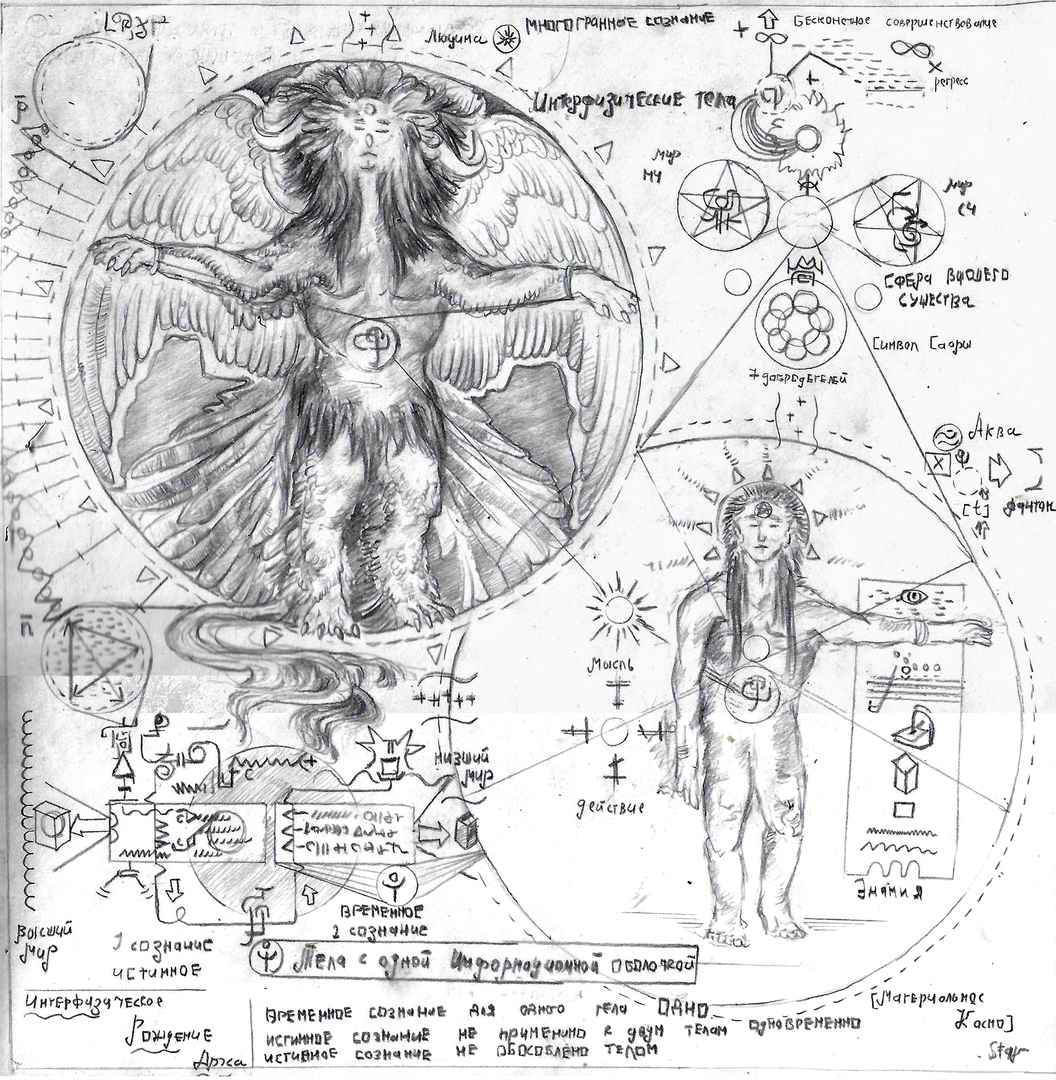 Людина
МНОГОГРАННОЕ СОЗНАНИЕ
Бесконечное совершенствование
регресс
Интерфизические тела
Мир
МЧ
Мир
СЧ
СФЕРА ВЫСШЕГО
СУЩЕСТВА
Символ Саоры
7 добродетелей
Аква
[t]
Фантом
Мысль
действие
НИЗШИЙ
МИР
Знания
ВРЕМЕННОЕ
2 СОЗНАНИЕ
ВЫСШИЙ
МИР
1 СОЗНАНИЕ
ИСТИННОЕ
Тела с одной Информационной ОБОЛОЧКОЙ
Интерфизическое
Рождение
ВРЕМЕННОЕ СОЗНАНИЕ ДЛЯ ОДНОГО ТЕЛА ОДНО
ИСТИННОЕ СОЗНАНИЕ НЕ ПРИМЕНИМО К ДВУМ ТЕЛАМ ОДНОВРЕМЕННО
ИСТИННОЕ СОЗНАНИЕ НЕ ОБОСОБЛЕНО ТЕЛОМ
[Материальное